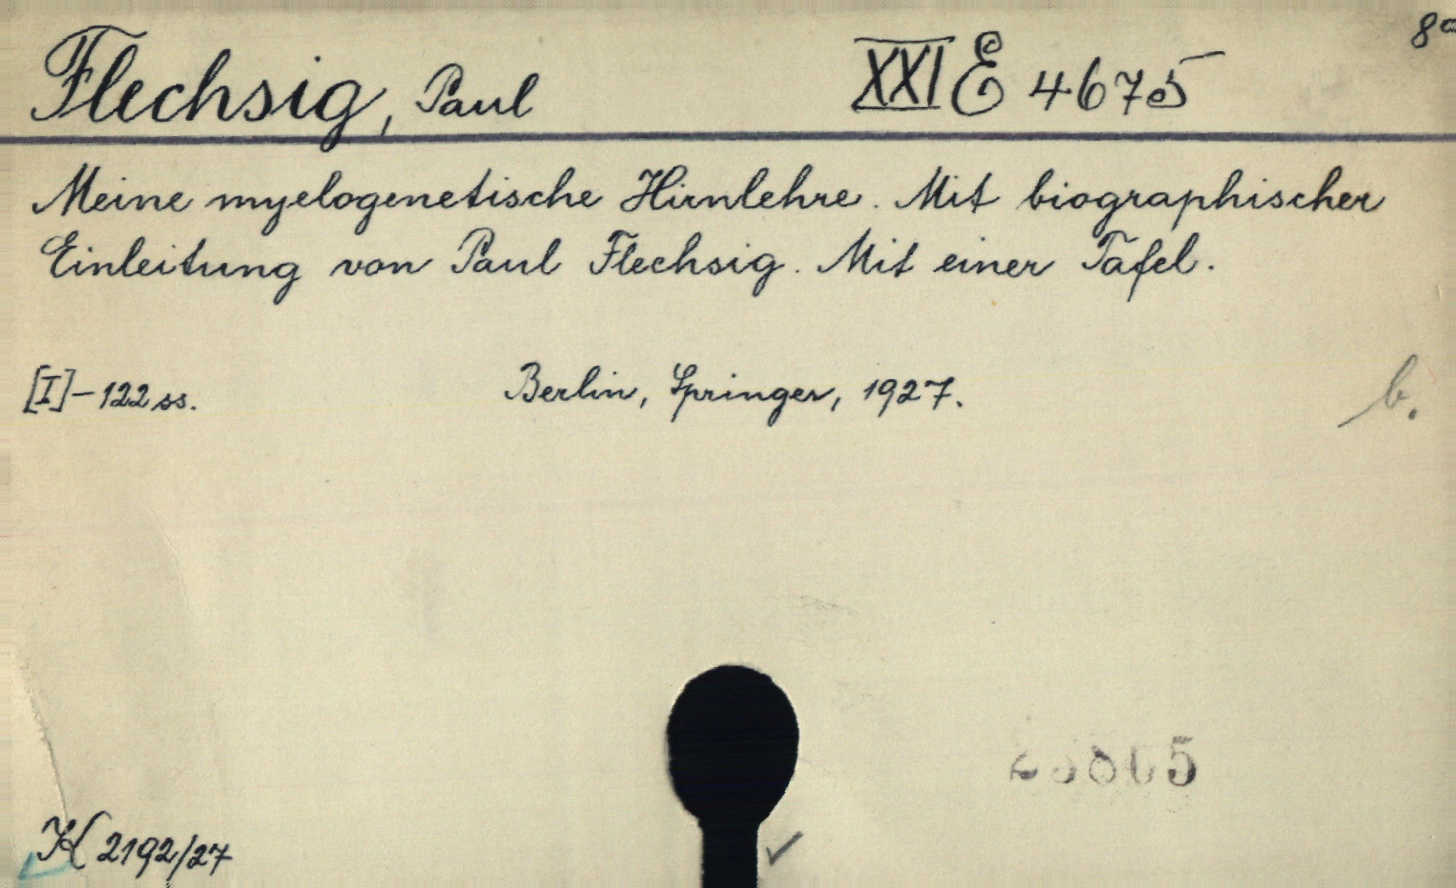 8°
Flechsig, Paul XXI E 4675
Meine myelogenetische Hirnlehre. Mit biographischer
Einleitung von Paul Flechsig. Mit einer Tafel.
[I]-122 ss. Berlin, Springer, 1927. b.
K 2192/27